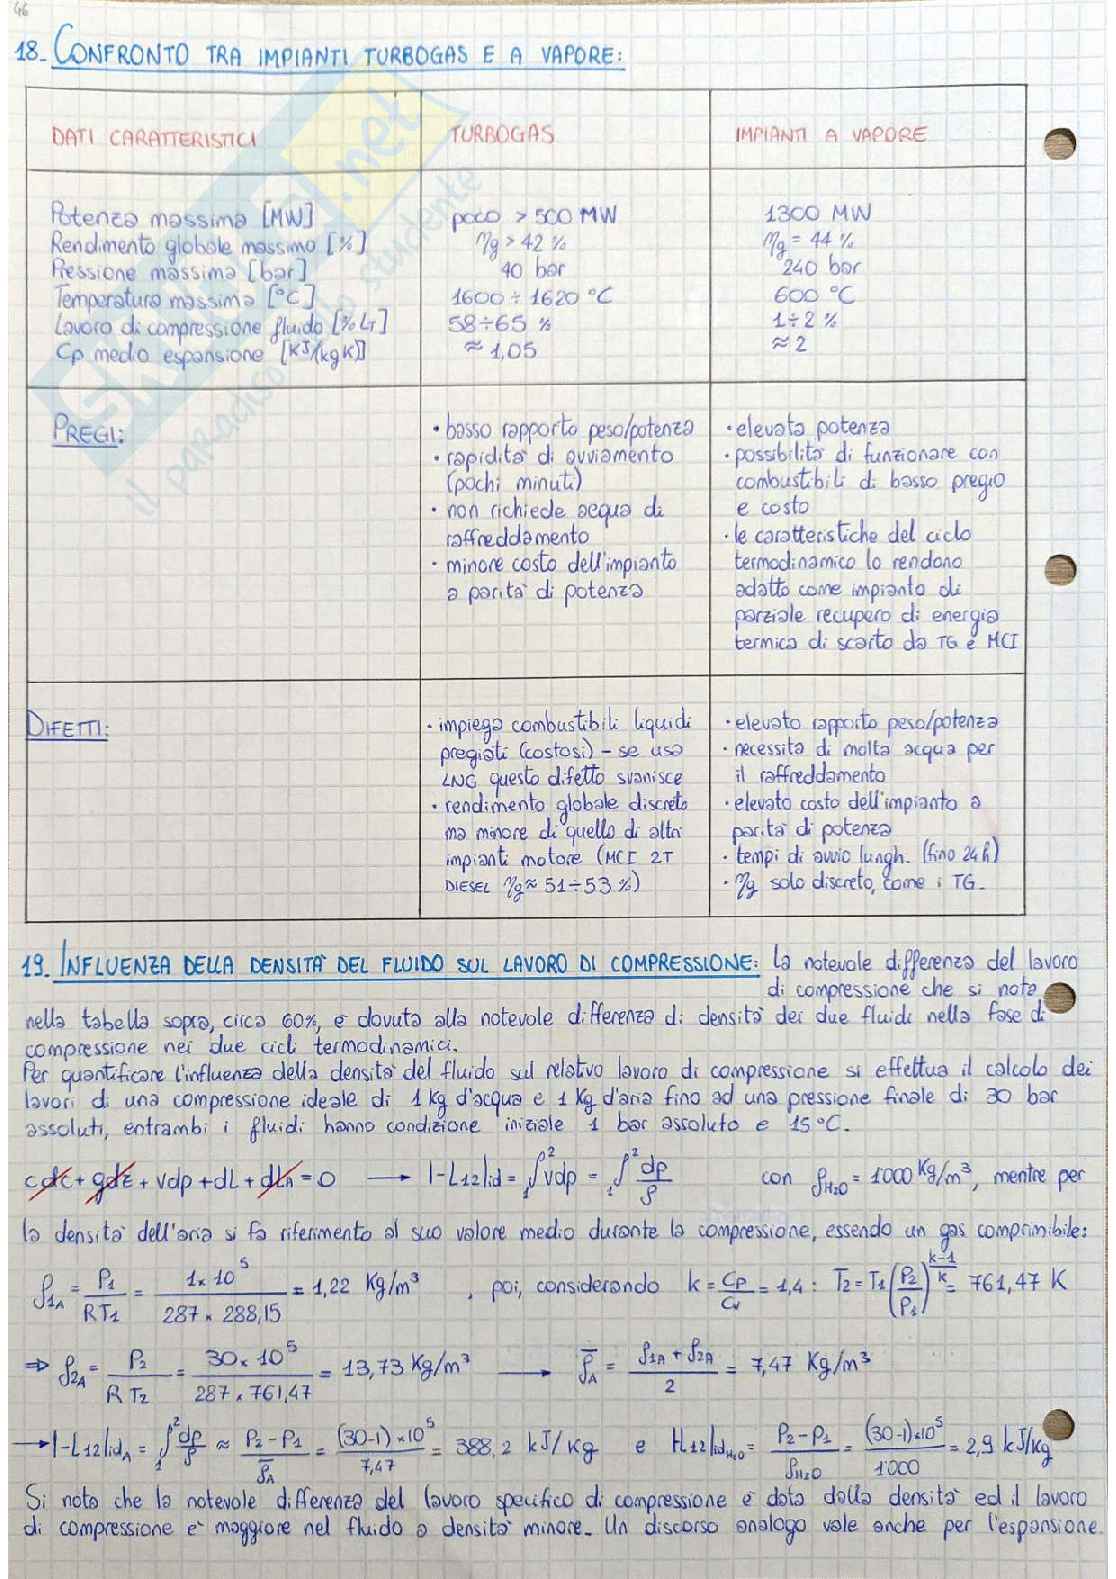 46
18. CONFRONTO TRA IMPIANTI TURBOGAS E A VAPORE:
DATI CARATTERISTICI
TURBOGAS
IMPIANTI A VAPORE
Potenza massima [MW]
poco > 500 MW
1300 MW
Rendimento globale massimo [%]
ηg > 42 %
ηg = 44 %
Pressione massima [bar]
40 bar
240 bar
Temperatura massima [°C]
1600 ÷ 1620 °C
600 °C
Lavoro di compressione fluido [% LT]
58÷65 %
1÷2 %
Cp medio espansione [KJ/(kg K)]
≈ 1,05
≈ 2
PREGI:
• basso rapporto peso/potenza
• rapidità di avviamento
(pochi minuti)
• non richiede acqua di
raffreddamento
• minore costo dell'impianto
a parità di potenza
• elevata potenza
• possibilità di funzionare con
combustibili di basso pregio
e costo
• le caratteristiche del ciclo
termodinamico lo rendono
adatto come impianto di
parziale recupero di energia
termica di scarto da TG e MCI
DIFETTI:
• impiega combustibili liquidi
pregiati (costosi) - se usa
LNG questo difetto svanisce
• rendimento globale discreto
ma minore di quello di altri
impianti motore (MCI 2T
DIESEL ηg ≈ 51÷53 %)
• elevato rapporto peso/potenza
• necessita di molta acqua per
il raffreddamento
• elevato costo dell'impianto a
parità di potenza
• tempi di avvio lunghi (fino 24h)
• ηg solo discreto, come i TG.
19. INFLUENZA DELLA DENSITÀ DEL FLUIDO SUL LAVORO DI COMPRESSIONE: La notevole differenza del lavoro
di compressione che si nota
nella tabella sopra, circa 60%, è dovuta alla notevole differenza di densità dei due fluidi nella fase di
compressione nei due cicli termodinamici.
Per quantificare l'influenza della densità del fluido sul relativo lavoro di compressione si effettua il calcolo dei
lavori di una compressione ideale di 1 Kg d'acqua e 1 Kg d'aria fino ad una pressione finale di 30 bar
assoluti, entrambi i fluidi hanno condizione iniziale 1 bar assoluto e 15°C.
cdc + gdz + vdp + dL + dLA = 0 → |-L12|id = ∫₁² vdp = ∫₁² dp/ρ con ρH2O = 1000 Kg/m³, mentre per
la densità dell'aria si fa riferimento al suo valore medio durante la compressione, essendo un gas comprimibile:
ρ1A = P1/(RT1) = 1×10⁵/(287 × 288,15) = 1,22 Kg/m³, poi, considerando k = Cp/Cv = 1,4 : T2 = T1(P2/P1)^((k-1)/k) = 761,47 K
⇒ ρ2A = P2/(RT2) = 30×10⁵/(287 × 761,47) = 13,73 Kg/m³ → ρ̄A = (ρ1A + ρ2A)/2 = 7,47 Kg/m³
→ |-L12|idA = ∫₁² dp/ρ ≈ (P2-P1)/ρ̄A = (30-1)×10⁵/7,47 = 388,2 kJ/Kg e |-L12|idH2O = (P2-P1)/ρH2O = (30-1)×10⁵/1000 = 2,9 kJ/Kg
Si nota che la notevole differenza del lavoro specifico di compressione è data dalla densità ed il lavoro
di compressione è maggiore nel fluido a densità minore. Un discorso analogo vale anche per l'espansione.